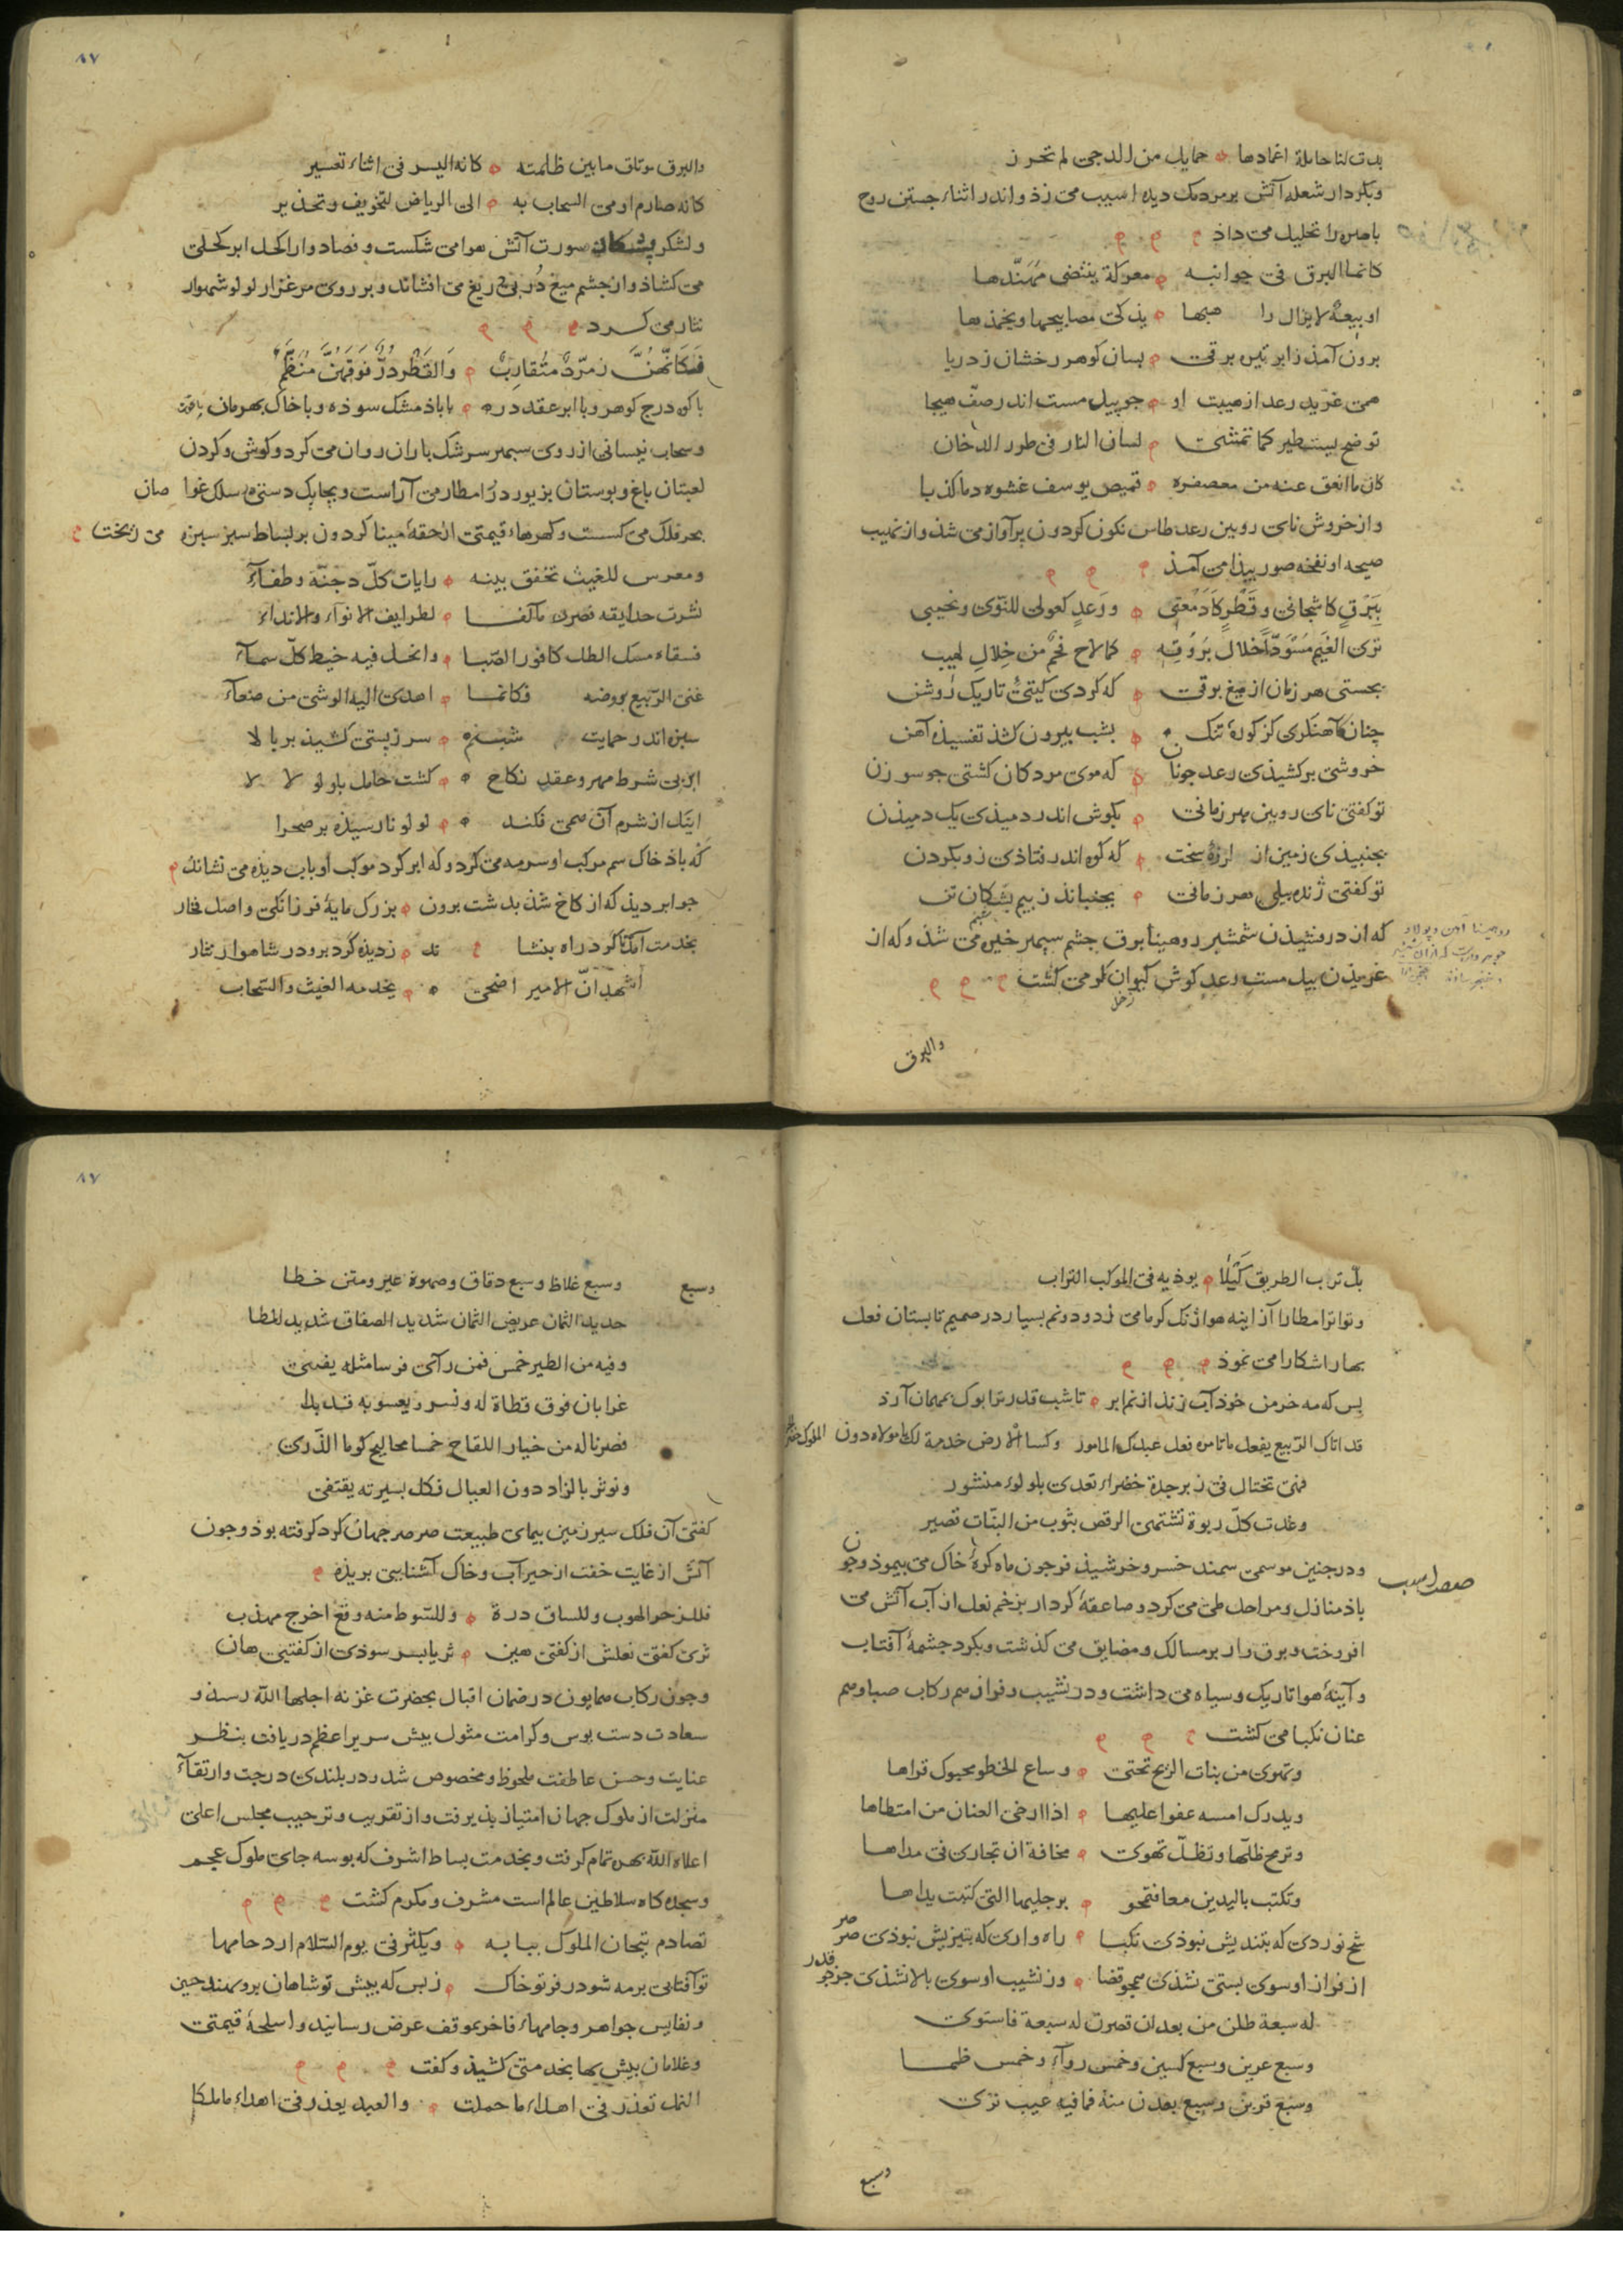 بدت لنا حاملة اغمادها حمايل من الدجی لم تحرز
وبکردار شعله آتش بر مردمک دیده اسیب می زذ و اندر اثناء جستن روح
باصره را تحلیل می داذ
کانما البرق فی جوانبه معرکة ینتضی مهندها
او بیعة لا یزال را هبها یذکی مصابیحها ویخمذها
برون آمذ ز ابر تیره برقی بسان کوهر رخشان ز دریا
همی غرید رعد از هیبت او جو پیل مست اندر صف هیجا
توضح یستطیر کما تمشی لسان النار فی طور الدخان
کان ما انعق عنه من معصفره قمیص یوسف غشوه دما کذبا
و از خروش نای رویین رعد طاس نکون کردون پر آواز می شذ و از نهیب
صیحه او نفخه صور پیذا می آمذ
ببرق کاشجانی وقطر کادمعی ورعد کعولی للنوی ونحیبی
تری الغیم مسودا خلال بروقه کما لاح فحم من خلال لهیب
بجستی هر زمان از میغ برقی که کردی کیتی تاریک روشن
چنان آهنکری کز کوره تنک بشب بیرون کشذ تفسیذه آهن
خروشی بر کشیذی رعد جونان که موی مردکان کشتی جو سوزن
تو کفتی نای رویین هر زمانی بکوش اندر دمیذی یک دمیذن
بجنبیذی زمین از لرزه سخت که کوه اندر فتاذی زو بکردن
تو کفتی ژنده پیلی هر زمانی بجنباند ز بیم پشکان تن
که از درفشیذن شمشیر روهینا برق جشم سپهر خیره می شذ و که از
غریذن پیل مست رعد کوش کیوان کر می کشت
زحل
والبرق
۸۷
والبرق موتلق مابین ظلمته کانه الیسر فی اثناء تعسیر
کانه صارم اومی السحاب به الی الریاض لتخویف وتحذیر
ولشکر صورت آتش هوا می شکست و فصاد وار اکحل ابر کحلی
می کشاذ و از جشم میغ در بی دریغ می افشاند و بر روی مرغزار لولو شهوار
نثار می کرد
فکانهن زمرد متقارب والقطر در فوقهن منظم
با کوه درج کوهر و با ابر عقد دره با باذ مشک سوذه و با خاک بهرمان یاقوت
و سحاب نیسانی از روی سپهر سرشک باران روان می کرد و کوش و کردن
لعبتان باغ و بوستان بزیور در امطار می آراست و بجابک دستی سلک غوا صان
بحر فلک می کسست و کهرهاء قیمتی از حقه مینا کردون بر بساط سبز می ریخت
ومعرس للغیث تخفق بینه رایات کل دجنة وطفاء
نشرت حدایقه فصرن مآلفا لطرایف الانواء والانداء
فسقاه مسک الطل کافور الصبا وانحل فیه خیط کل سماء
غنی الربیع بروضه فکانما اهدی الیه الوشی من صنعاء
سبزه اندر حمایت شبنم سر ز پستی کشیذ بر بالا
ابر بی شرط مهر و عقد نکاح کشت حامل بلولو لالا
اینک از شرم آن همی فکند لولو نارسیذه بر صحرا
که باذ خاک سم مرکب او سرمه می کرد و که ابر کرد موکب او باب دیذه می نشاند
جو ابر دیذ که از کاخ شذ بدشت برون بزرک مایه فرزانکی و اصل فخار
بخدمت آمد تا کرد راه بنشاند ز دیذه کرد برو در شاهوار نثار
اشهد ان الامیر اضحی یخدمه الغیث والسحاب
بل ترب الطریق کیلا یوذیه فی الموکب التراب
و تواتر امطار از آینه هوا زنک کرما می زدود و نم بسیار در صمیم تابستان فعل
بهار اشکارا می نموذ
بس که مه خرمن خوذ آب زند از نم ابر تا شب قدر ترا بوک بمهمان آرذ
قد اتاک الربیع یفعل ما تامره فعل عبدک المامور وکسا الارض خدمة لک یا مولاه دون الملوک
فهی تختال فی زبرجدة خضراء تغذی بلولوء منثور
وغدت کل ربوة تشتهی الرقص بثوب من النبات قصیر
و در جنین موسمی سمند خسرو خرشیذ فر جون ماه کره خاک می بیموذ و جون
باذ منازل و مراحل طی می کرد و صاعقه کردار بزخم نعل از آب آتش می
افروخت و برق وار بر مسالک و مضایق می کذشت و بکرد جشمه آفتاب
و آینه هوا تاریک و سیاه می داشت و در نشیب و فراز هم رکاب صبا و هم
عنان نکبا می کشت
وتهوی من بنات الریح تحتی وساع الخطو محبوک قراها
ویدرک امسه عفوا علیها اذا ارخی العنان من امتطاها
وترمح ظلها وتظل تهوی مخافة ان تجاری فی مداها
وتکتب بالیدین معا فتمحو برجلیها التی کتبت یداها
شخ نوردی که بتندیش نبوذی نکبا راه واری که بتیزیش نبوذی صرصر
از فراز او سوی پستی نشذی همجو قضا وز نشیب او سوی بالا نشذی جز جو قدر
له سبعة طلن من بعد ان قصرن له سبعة فاستوی
وسبع عرین وسبع کسین وخمس رواء وخمس ظما
وسبع قربن وسبع بعدن منه فما فیه عیب تری
وسبع
وسبع غلاظ وسبع دقاق وصهوة عیر ومتن خطا
حدید الثمان عریض الثمان شدید الصفاق شدید المطا
وفیه من الطیر خمس فمن رآی فرسا مثله یقتنی
غرابان فوق قطاة له ونسر ویعسوبه قد بدا
فصرنا له من خیار اللقاح خمسا مجالیح کوما الذری
ونوثر بالزاد دون العیال فکل بسیرته یقتفی
کفتی آن فلک سیر زمین بیمای طبیعت صرصر جهان کرد کرفته بوذ و جون
آتش از غایت خفت از حیز آب و خاک آشنایی بریذه
فللزجر الهوب وللساق درة وللسوط منه وقع اخرج مهذب
ثری کفتی نعلش از کفتی هین ثریا بسر سوذی از کفتیی هان
و جون رکاب همایون در ضمان اقبال بحضرت غزنه اجلها الله رسیذ و
سعادت دست بوس و کرامت مثول بیش سریر اعظم دریافت بنظر
عنایت و حسن عاطفت ملحوظ و مخصوص شد و در بلندی درجت و ارتقاء
منزلت از ملوک جهان امتیاز پذیرفت و از تقریب و ترحیب مجلس اعلی
اعلاه الله بهره تمام کرفت و بخدمت بساط اشرف که بوسه جای ملوک عجم
و سجده کاه سلاطین عالم است مشرف و مکرم کشت
تصادم تیجان الملوک ببابه ویکثر فی یوم السلام ازدحامها
تو آفتابی بر مه شود ز فر تو خاک ز بس که بیش تو شاهان برو نهند جبین
و نفایس جواهر و جامهاء فاخر بموقف عرض رسانید و اسلحه قیمتی
و غلامان بیش بها بخدمتی کشیذ و کفت
النمل تعذر فی اهداء ما حملت والعبد یعذر فی اهداء ما ملکا